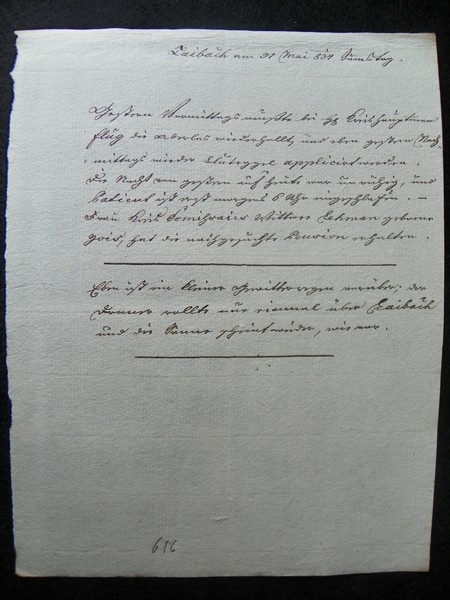 Laibach am 31 Mai 834 Samstag.
Gestern Vormittags mußte bei H. Kreishauptmann
Flüg die Aderlas wiederhollt, und eben gestern Nach-
mittags wieder Blutegel applicirt werden.
Die Nacht von gestern auf heute war unruhig, und
Patient ist erst morgens 6 Uhr eingeschlafen. —
Frau Kreis Witwe geborne
hat die nachgesuchte Pension erhalten.
Eben ist ein kleiner Gewitterregen vorüber; der
Donner rollte nur einmal über Laibach
und die Sonne scheint wieder, wie vor.
616